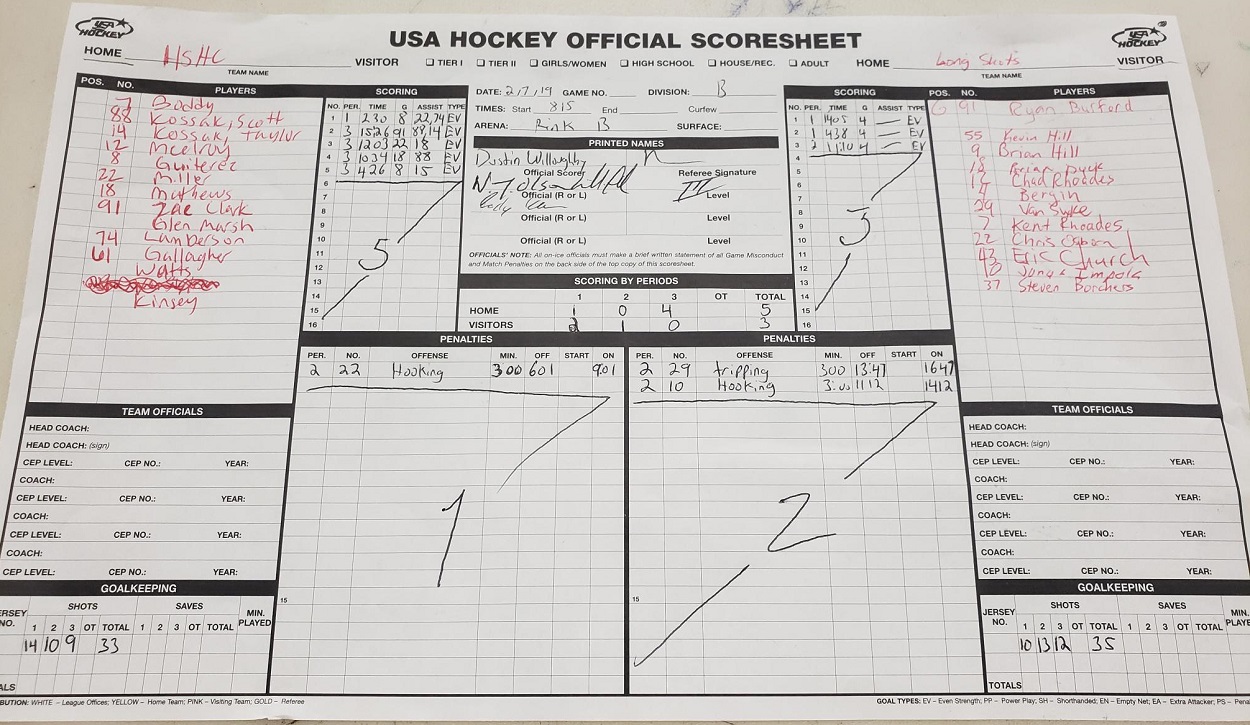 USA HOCKEY
USA HOCKEY OFFICIAL SCORESHEET
USA HOCKEY
HOME HSHC VISITOR
TEAM NAME
☐ TIER I ☐ TIER II ☐ GIRLS/WOMEN ☐ HIGH SCHOOL ☐ HOUSE/REC. ☐ ADULT
HOME Long Shots VISITOR
TEAM NAME
POS. NO. PLAYERS
7 Boddy
88 Kossak, Scott
14 Kossak, Taylor
12 Mcelroy
8 Guiterez
22 Miller
18 Mathews
91 Zac Clark
Glen Marsh
74 Lamberson
61 Gallagher
Watts
Kinsey
SCORING
NO. PER. TIME G ASSIST TYPE
1 1 230 8 22,74 EV
2 3 1526 91 88,14 EV
3 3 1203 22 18 EV
4 3 1034 18 88 EV
5 3 426 8 15 EV
6
7
8
9
10
11
12
13
14
15
16
5
DATE: 2/7/19 GAME NO. DIVISION: B
TIMES: Start 815 End Curfew
ARENA: Rink B SURFACE:
PRINTED NAMES
Dustin Willoughby
Official Scorer Referee Signature
III
Official (R or L) Level
Official (R or L) Level
Official (R or L) Level
OFFICIALS' NOTE: All on-ice officials must make a brief written statement of all Game Misconduct
and Match Penalties on the back side of the top copy of this scoresheet.
SCORING BY PERIODS
1 2 3 OT TOTAL
HOME 1 0 4 5
VISITORS 2 1 0 3
SCORING
NO. PER. TIME G ASSIST TYPE
1 1 1405 4 — EV
2 1 438 4 — EV
3 2 1110 4 — EV
4
5
6
7
8
9
10
11
12
13
14
15
16
3
POS. NO. PLAYERS
G 91 Ryan Burford
55 Kevin Hill
9 Brian Hill
Chad Rhoades
Bergin
29 Van Syke
7 Kent Rhoades
22 Chris Osborn
43 Eric Church
10 Jonas Impola
37 Steven Borchers
PENALTIES
PER. NO. OFFENSE MIN. OFF START ON
2 22 Hooking 300 601 901
1
15
PENALTIES
PER. NO. OFFENSE MIN. OFF START ON
2 29 tripping 300 13:47 1647
2 10 Hooking 3:00 1112 1412
2
15
TEAM OFFICIALS
HEAD COACH:
HEAD COACH: (sign)
CEP LEVEL: CEP NO.: YEAR:
COACH:
CEP LEVEL: CEP NO.: YEAR:
COACH:
CEP LEVEL: CEP NO.: YEAR:
COACH:
CEP LEVEL: CEP NO.: YEAR:
GOALKEEPING
JERSEY NO. SHOTS SAVES MIN. PLAYED
1 2 3 OT TOTAL 1 2 3 OT TOTAL
14 10 9 33
ALS
TEAM OFFICIALS
HEAD COACH:
HEAD COACH: (sign)
CEP LEVEL: CEP NO.: YEAR:
COACH:
CEP LEVEL: CEP NO.: YEAR:
COACH:
CEP LEVEL: CEP NO.: YEAR:
COACH:
CEP LEVEL: CEP NO.: YEAR:
GOALKEEPING
JERSEY NO. SHOTS SAVES MIN. PLAYE
1 2 3 OT TOTAL 1 2 3 OT TOTAL
10 13 12 35
TOTALS
BUTION: WHITE – League Offices; YELLOW – Home Team; PINK – Visiting Team; GOLD – Referee
GOAL TYPES: EV – Even Strength; PP – Power Play; SH – Shorthanded; EN – Empty Net; EA – Extra Attacker; PS – Pena